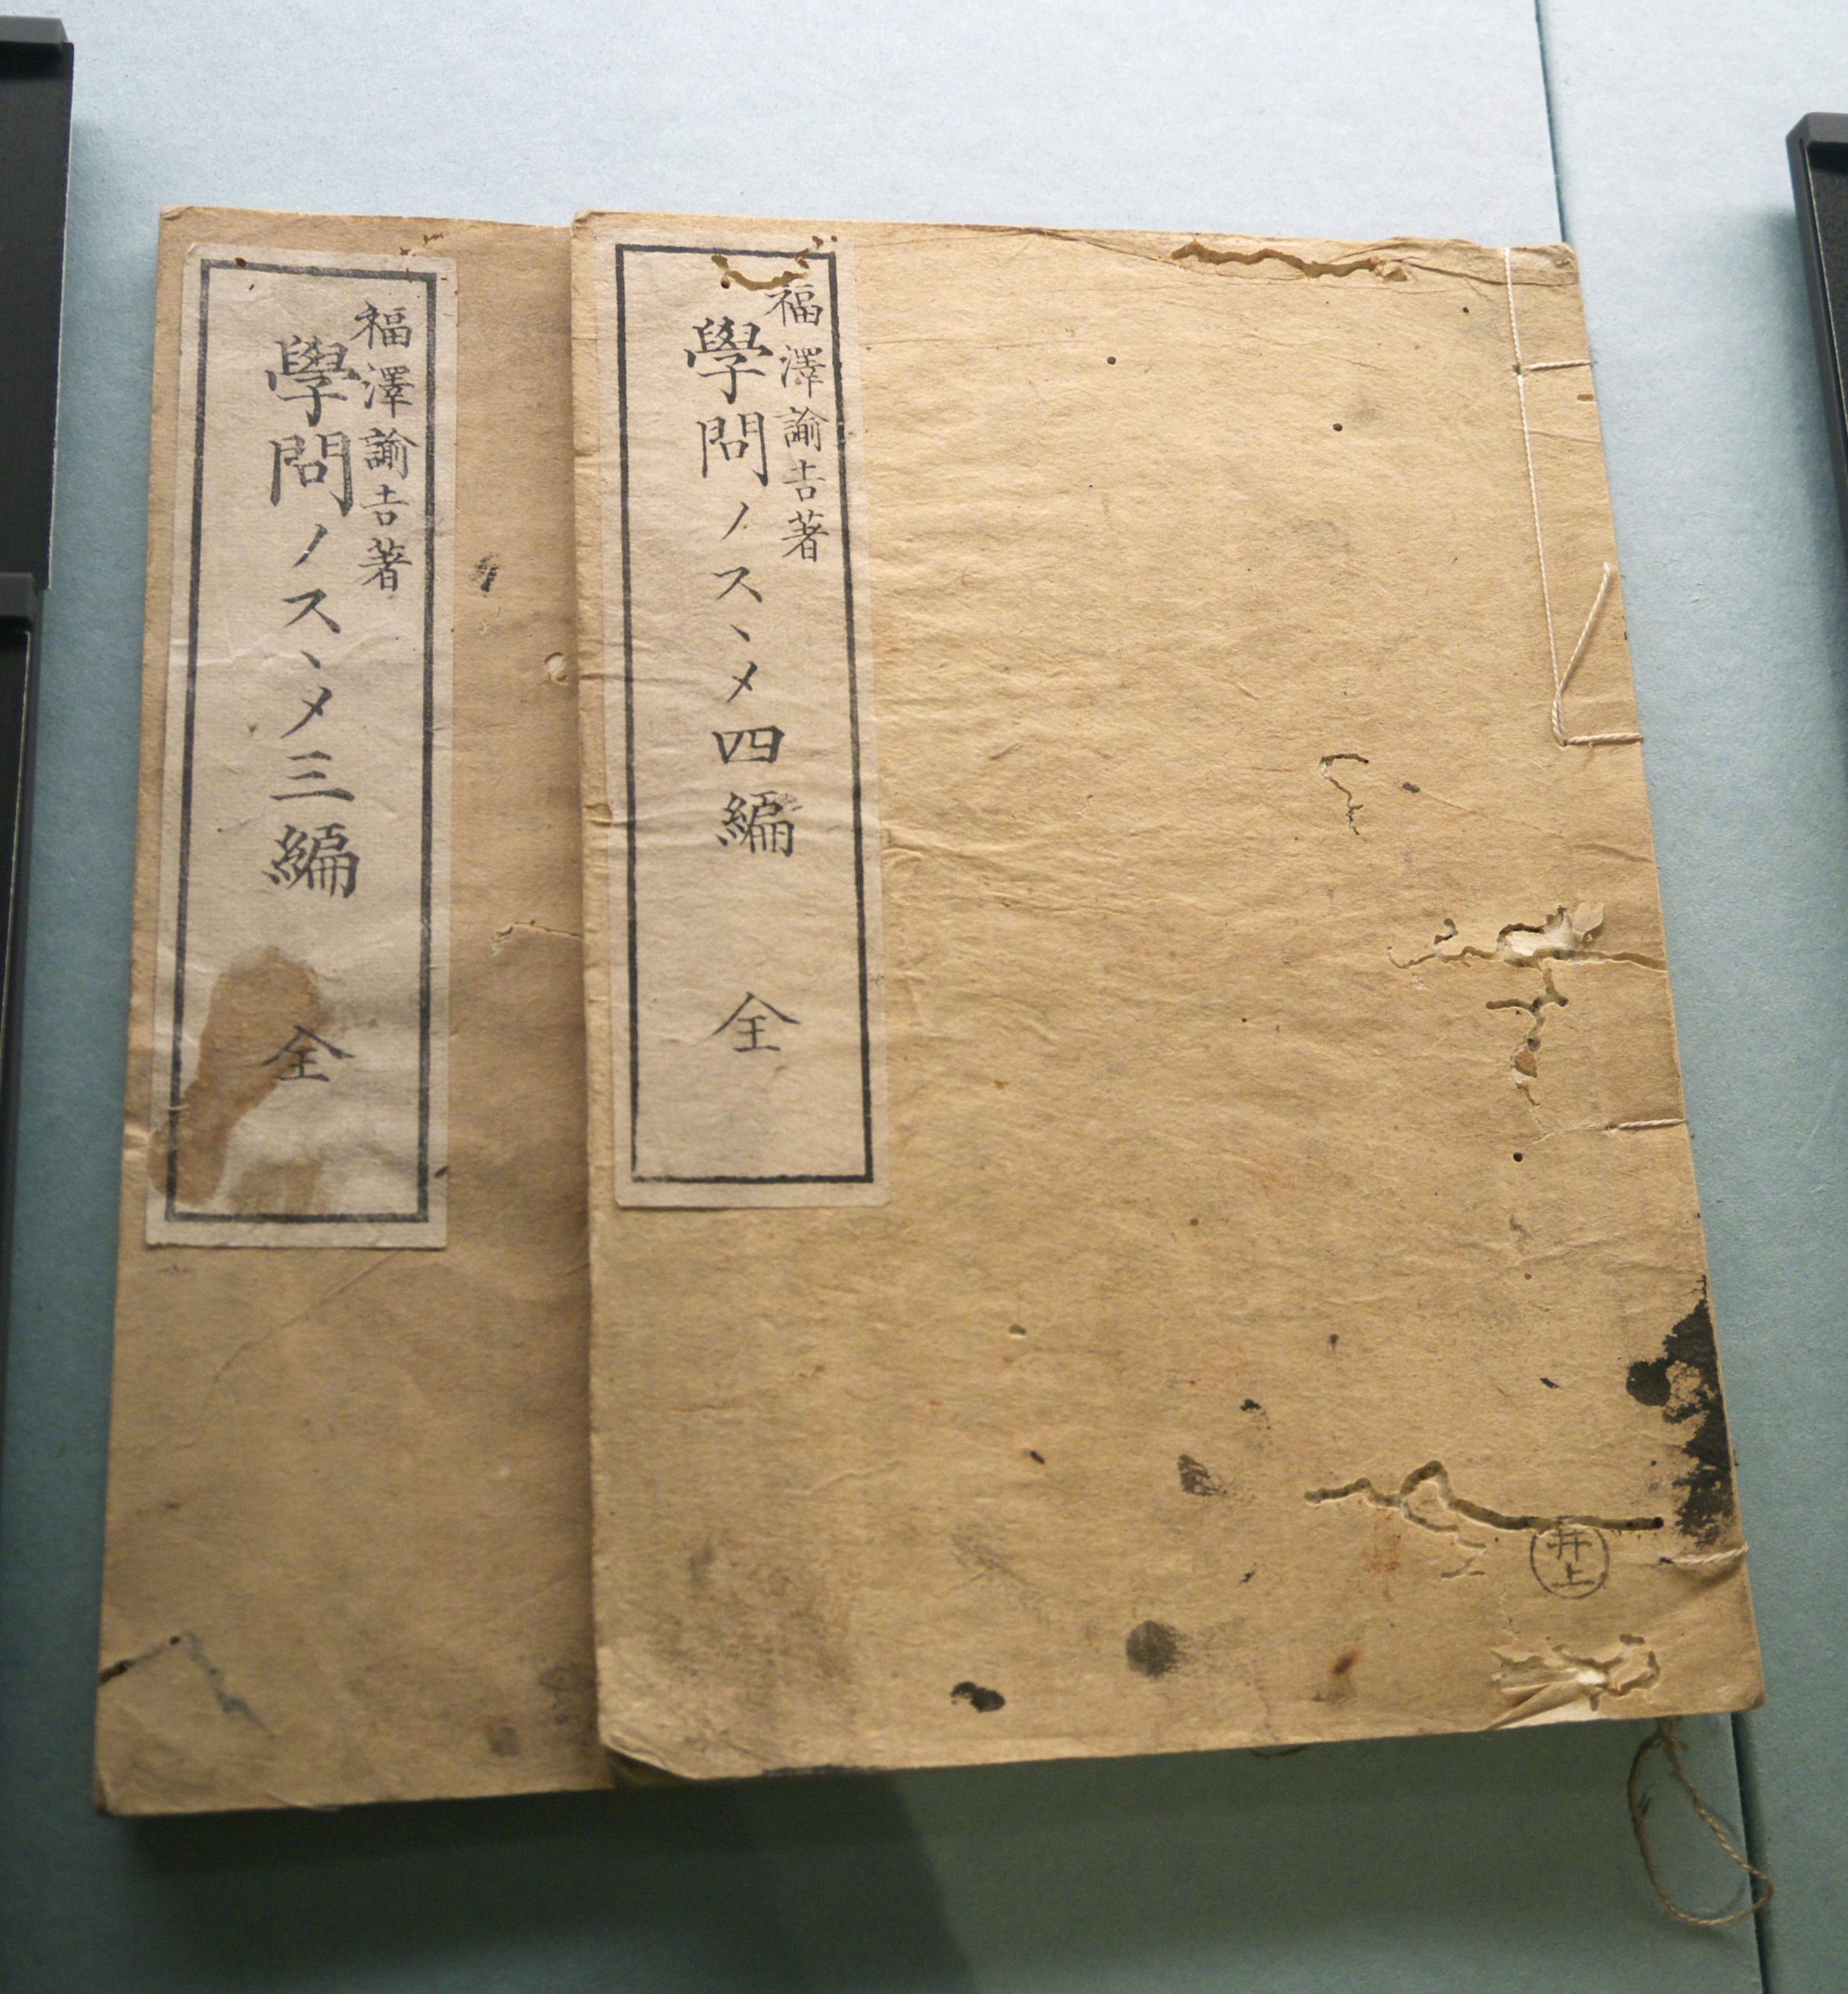 福澤諭吉著
學問ノスヽメ四編 全
井上
福澤諭吉著
學問ノスヽメ三編 全